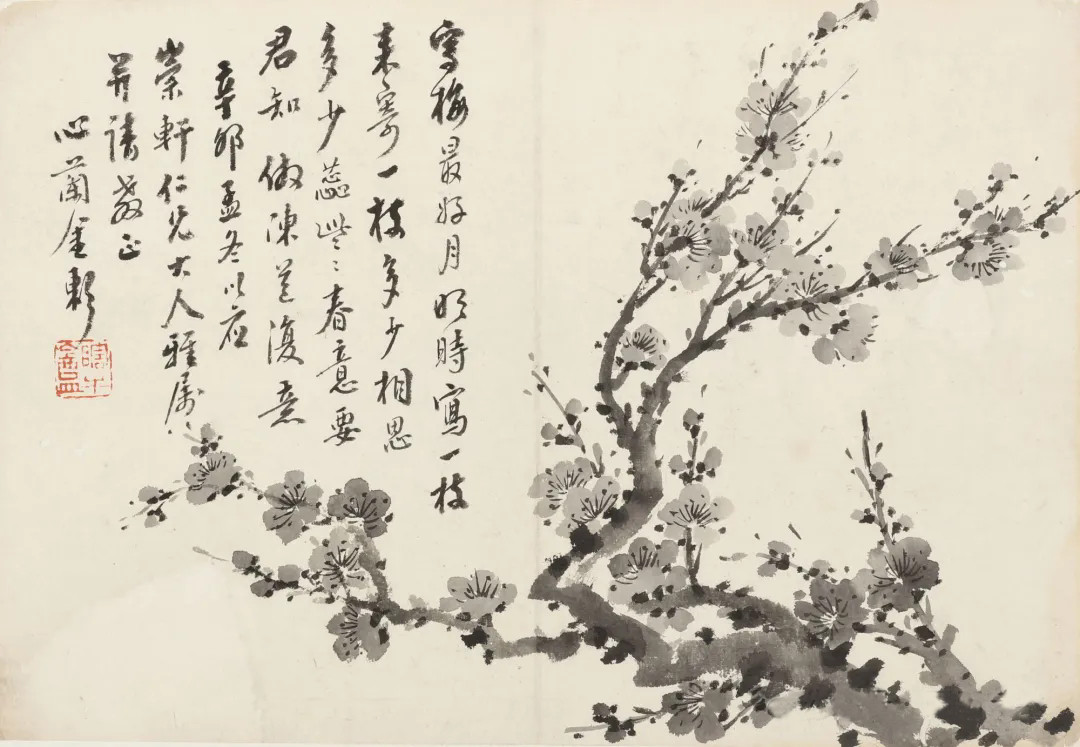 寫梅最好月明時寫一枝
來寄一枝多少相思
多少蕊些〻春意要
君知 倣陳道復意
辛卯孟冬以應
崇軒仁兄大人雅屬
並請教正
心蘭金𦕈